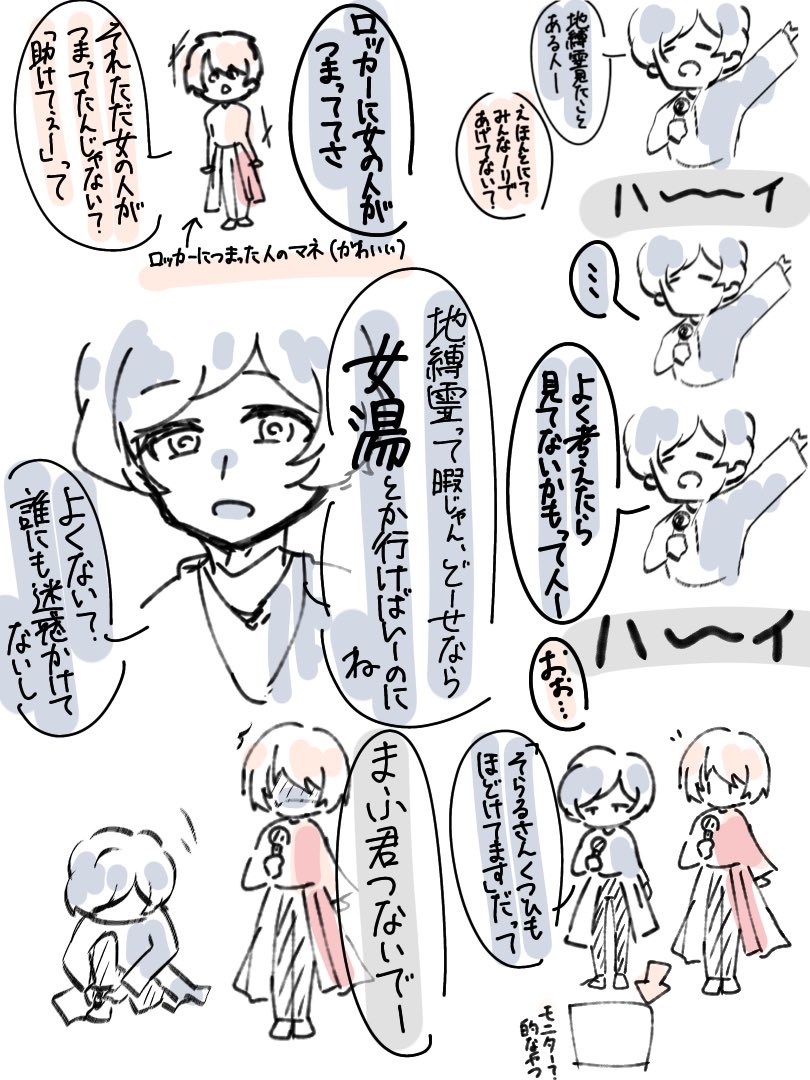 地縛霊見たいこと
ある人ー
えほんとに?
みんなノリで
あげてない?
ハーーイ
…
よく考えたら
見てないかもって人ー
ハーーイ
おお…
ロッカーに女の人が
つまっててさ
それただ女の人が
つまってたんじゃない?
「助けてぇー」って
ロッカーにつまった人のマネ(かわいい)
地縛霊って暇じゃん、どーせなら
女湯とか行けばいーのに
ね
よくない?
誰にも迷惑かけて
ないし
「そらるさんくつひも
ほどけてます」だって
モニター?
的なやつ
まふ君つないでー